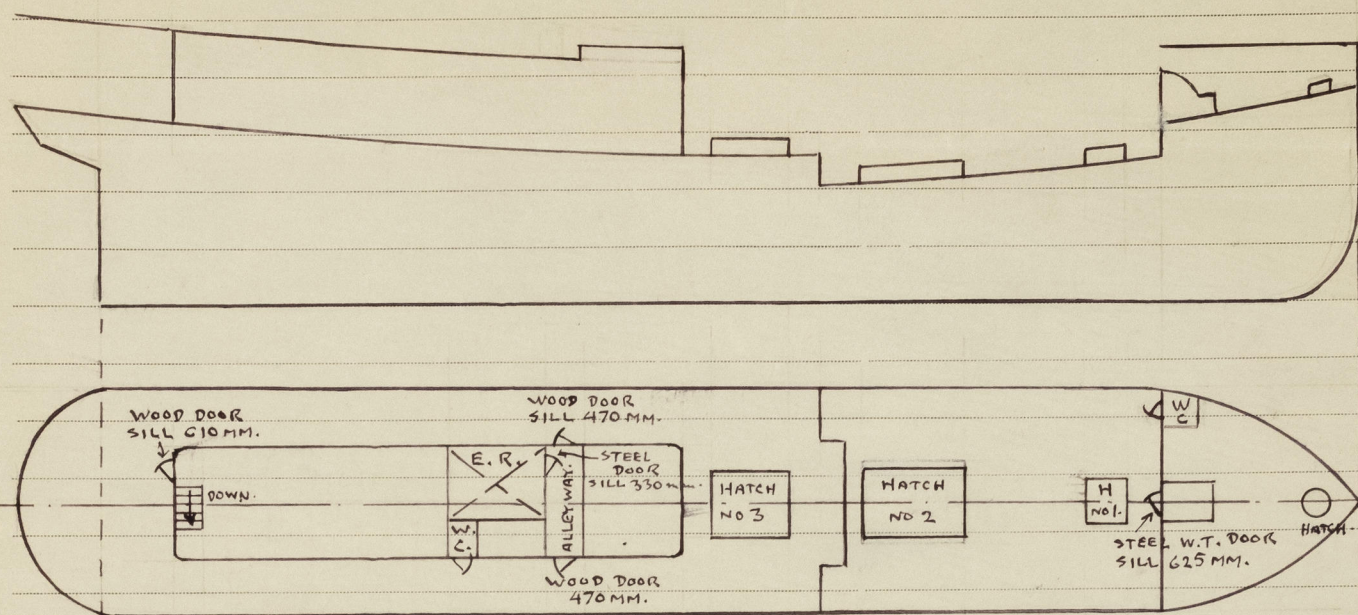 WOOD DOOR
SILL 610 MM.
DOWN.
E. R.
W.C.
ALLEYWAY.
WOOD DOOR
SILL 470 MM.
STEEL
DOOR
SILL 330 mm.
WOOD DOOR
470 MM.
HATCH
NO 3
HATCH
NO 2
H
NO 1.
W
C
STEEL W.T. DOOR
SILL 625 MM.
HATCH.